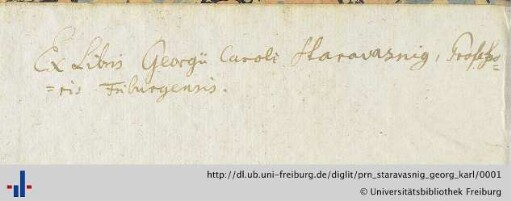 Ex Libris Georgii Caroli Staravasnig, Professo=
=ris Friburgensis.
http://dl.ub.uni-freiburg.de/diglit/prn_staravasnig_georg_karl/0001
© Universitätsbibliothek Freiburg